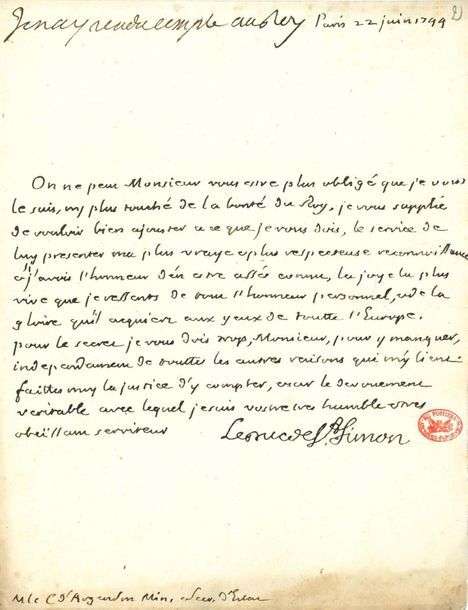 J'en ay rendu compte au Roy Paris 22 juin 1744
On ne peut Monsieur vous estre plus obligé que je vous
le suis, ny plus touché de la bonté du Roy. je vous supplie
de vouloir bien ajouster a ce que je vous dois, le service de
luy presenter ma plus vraye et plus respectueuse reconnoissance
j'avois l'honneur d'en estre assés connu, la joye la plus
vive que je ressents de tout l'honneur personnel, et de la
gloire qu'il acquiert aux yeux de toutte l'Europe.
pour le secret je vous dois trop, Monsieur, pour y manquer,
independament de touttes les autres raisons qui m'y lient.
faittes moy la justice d'y compter, et sur le devouement
veritable avec lequel je suis vostre tres humble et tres
obeïssant serviteur Le Duc de St Simon
M. le C. d'Argenson Min. et Sec. d'Estat